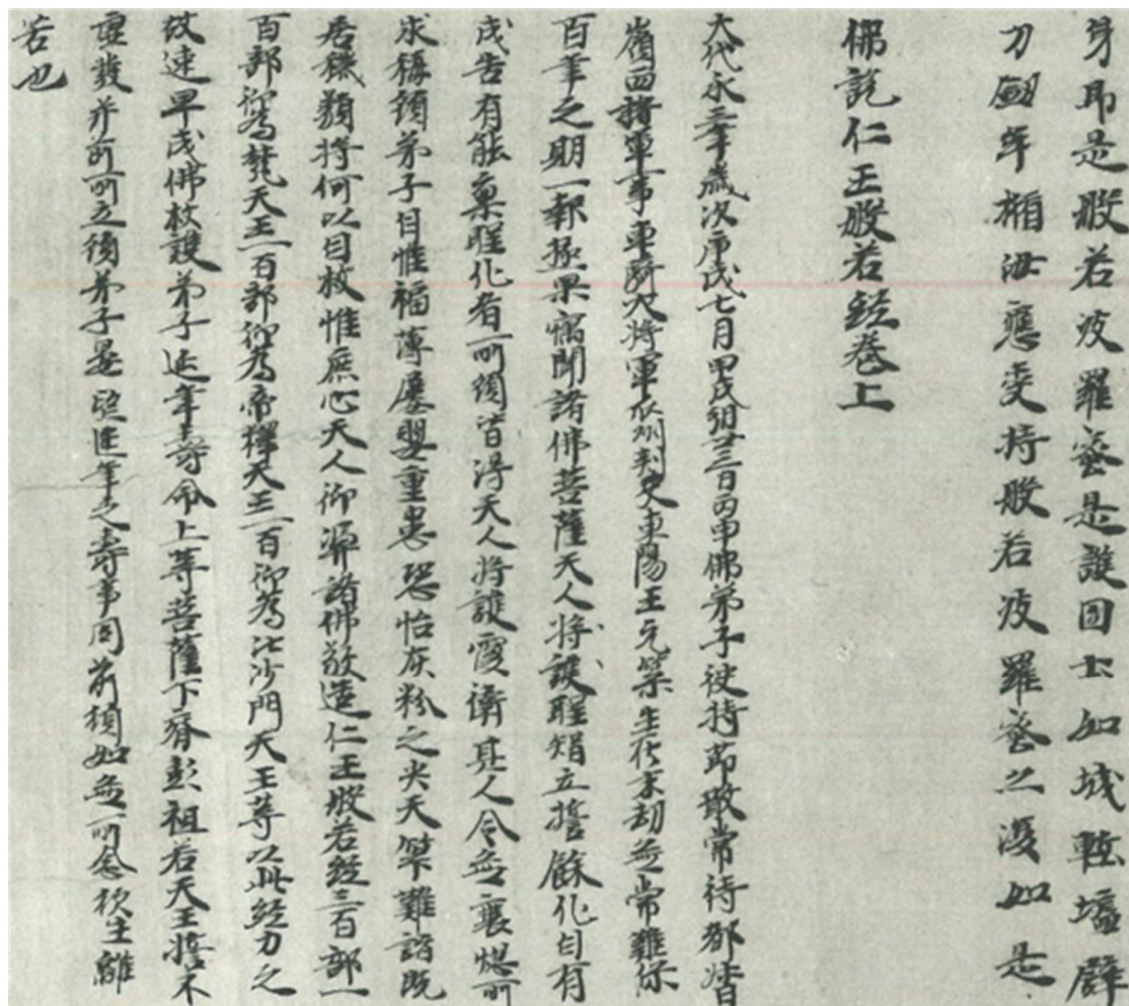 身即是般若波羅蜜是護国土如城塹墻壁
刀劔牟楯汝應受持般若波羅蜜之復如是
佛說仁王般若經卷上
大代永三年歲次庚戌七月甲戌朔廿三日丙申佛弟子使持節散常侍都督
嶺西諸軍事車騎大將軍瓜州刾史東陽王元榮生在末劫無常難保
百年之期一報極果竊聞諸佛菩薩天人將護聖智立誓餘化自有
成告有能稟聖化者所須皆得天人將護覆衛其人令無襄惱所
求稱須弟子自惟福薄屢嬰重患恐怡灰粉之央天筭難詣既
居穢類將何以自救惟庶心天人仰歸諸佛敬造仁王般若經三百部一
百部仰為梵天王一百部仰為帝釋天王一百仰為比沙門天王等以此經力之
故速早成佛救護弟子延年壽命上等菩薩下齊彭祖若天王誓不
虛發并前所立須弟子晏望延年之壽事同前須如無所念欲生離
苦也